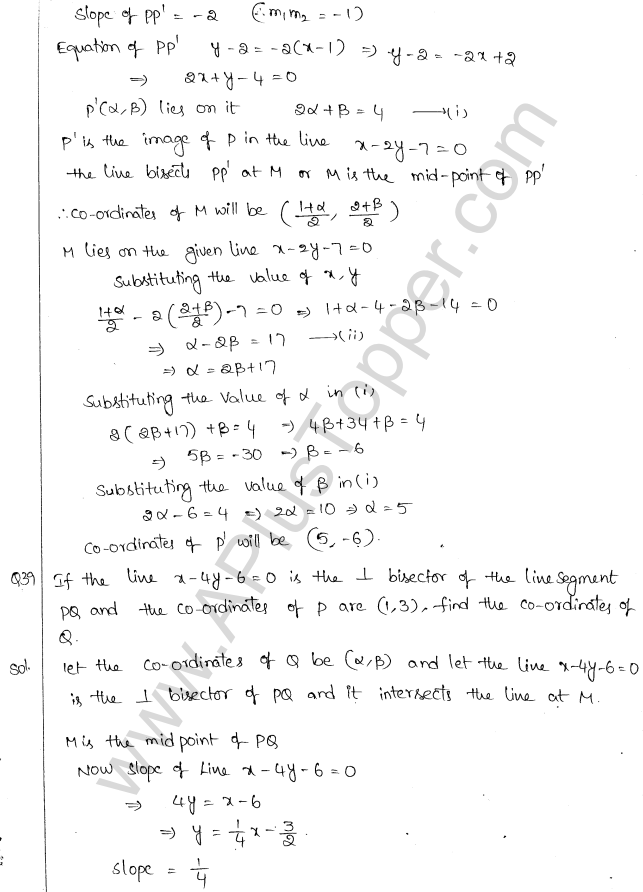 Slope of PP' = -2 (∵ m₁m₂ = -1)
Equation of PP' y-2 = -2(x-1) ⇒ y-2 = -2x+2
⇒ 2x+y-4=0
P'(α,β) lies on it 2α+β=4 ⟶(i)
P' is the image of P in the line x-2y-7=0
the line bisects PP' at M or M is the mid-point of PP'
∴ co-ordinates of M will be ((1+α)/2, (2+β)/2)
M lies on the given line x-2y-7=0
Substituting the value of x,y
(1+α)/2 - 2((2+β)/2) - 7 = 0 ⇒ 1+α-4-2β-14=0
⇒ α-2β=17 ⟶(ii)
⇒ α=2β+17
Substituting the value of α in (i)
2(2β+17)+β=4 ⇒ 4β+34+β=4
⇒ 5β=-30 ⇒ β=-6
Substituting the value of β in (i)
2α-6=4 ⇒ 2α=10 ⇒ α=5
co-ordinates of P' will be (5,-6).
Q39 If the line x-4y-6=0 is the ⊥ bisector of the line segment
PQ and the co-ordinates of P are (1,3), find the co-ordinates of
Q.
Sol. let the co-ordinates of Q be (α,β) and let the line x-4y-6=0
is the ⊥ bisector of PQ and it intersects the line at M.
M is the mid point of PQ
Now slope of line x-4y-6=0
⇒ 4y=x-6
⇒ y=1/4 x - 3/2
Slope = 1/4
www.APlusTopper.com